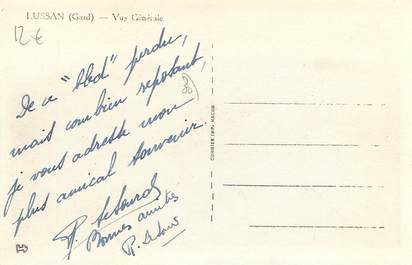 LUSSAN (Gard) — Vue Générale
12 €
De ce "bled" perdu,
mais combien reposant,
je vous adresse mon
plus amical souvenir.
Bonnes amitiés
COURRIER IMP. MACON